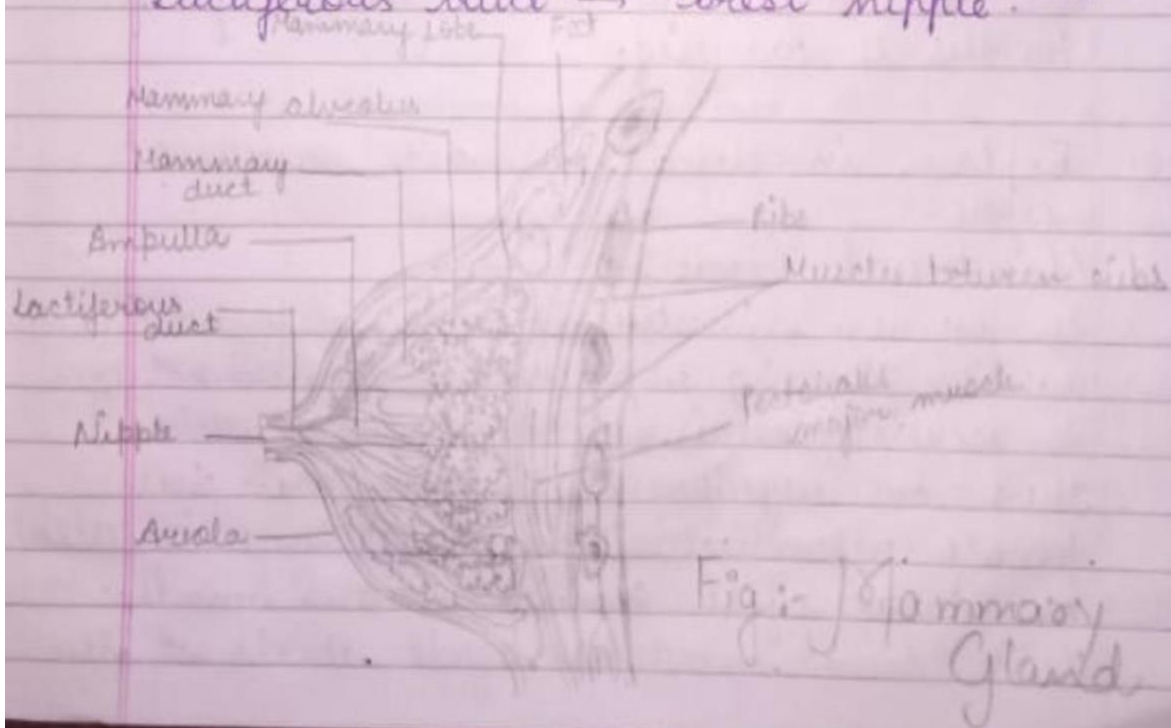 Lactiferous duct →  nipple.
Mammary Lobe
Fat
Mammary alveolus
Mammary
duct
Ampulla
Lactiferous
duct
Nipple
Areola
Ribs
Muscles between ribs
major muscle
Fig :- Mammary
Gland